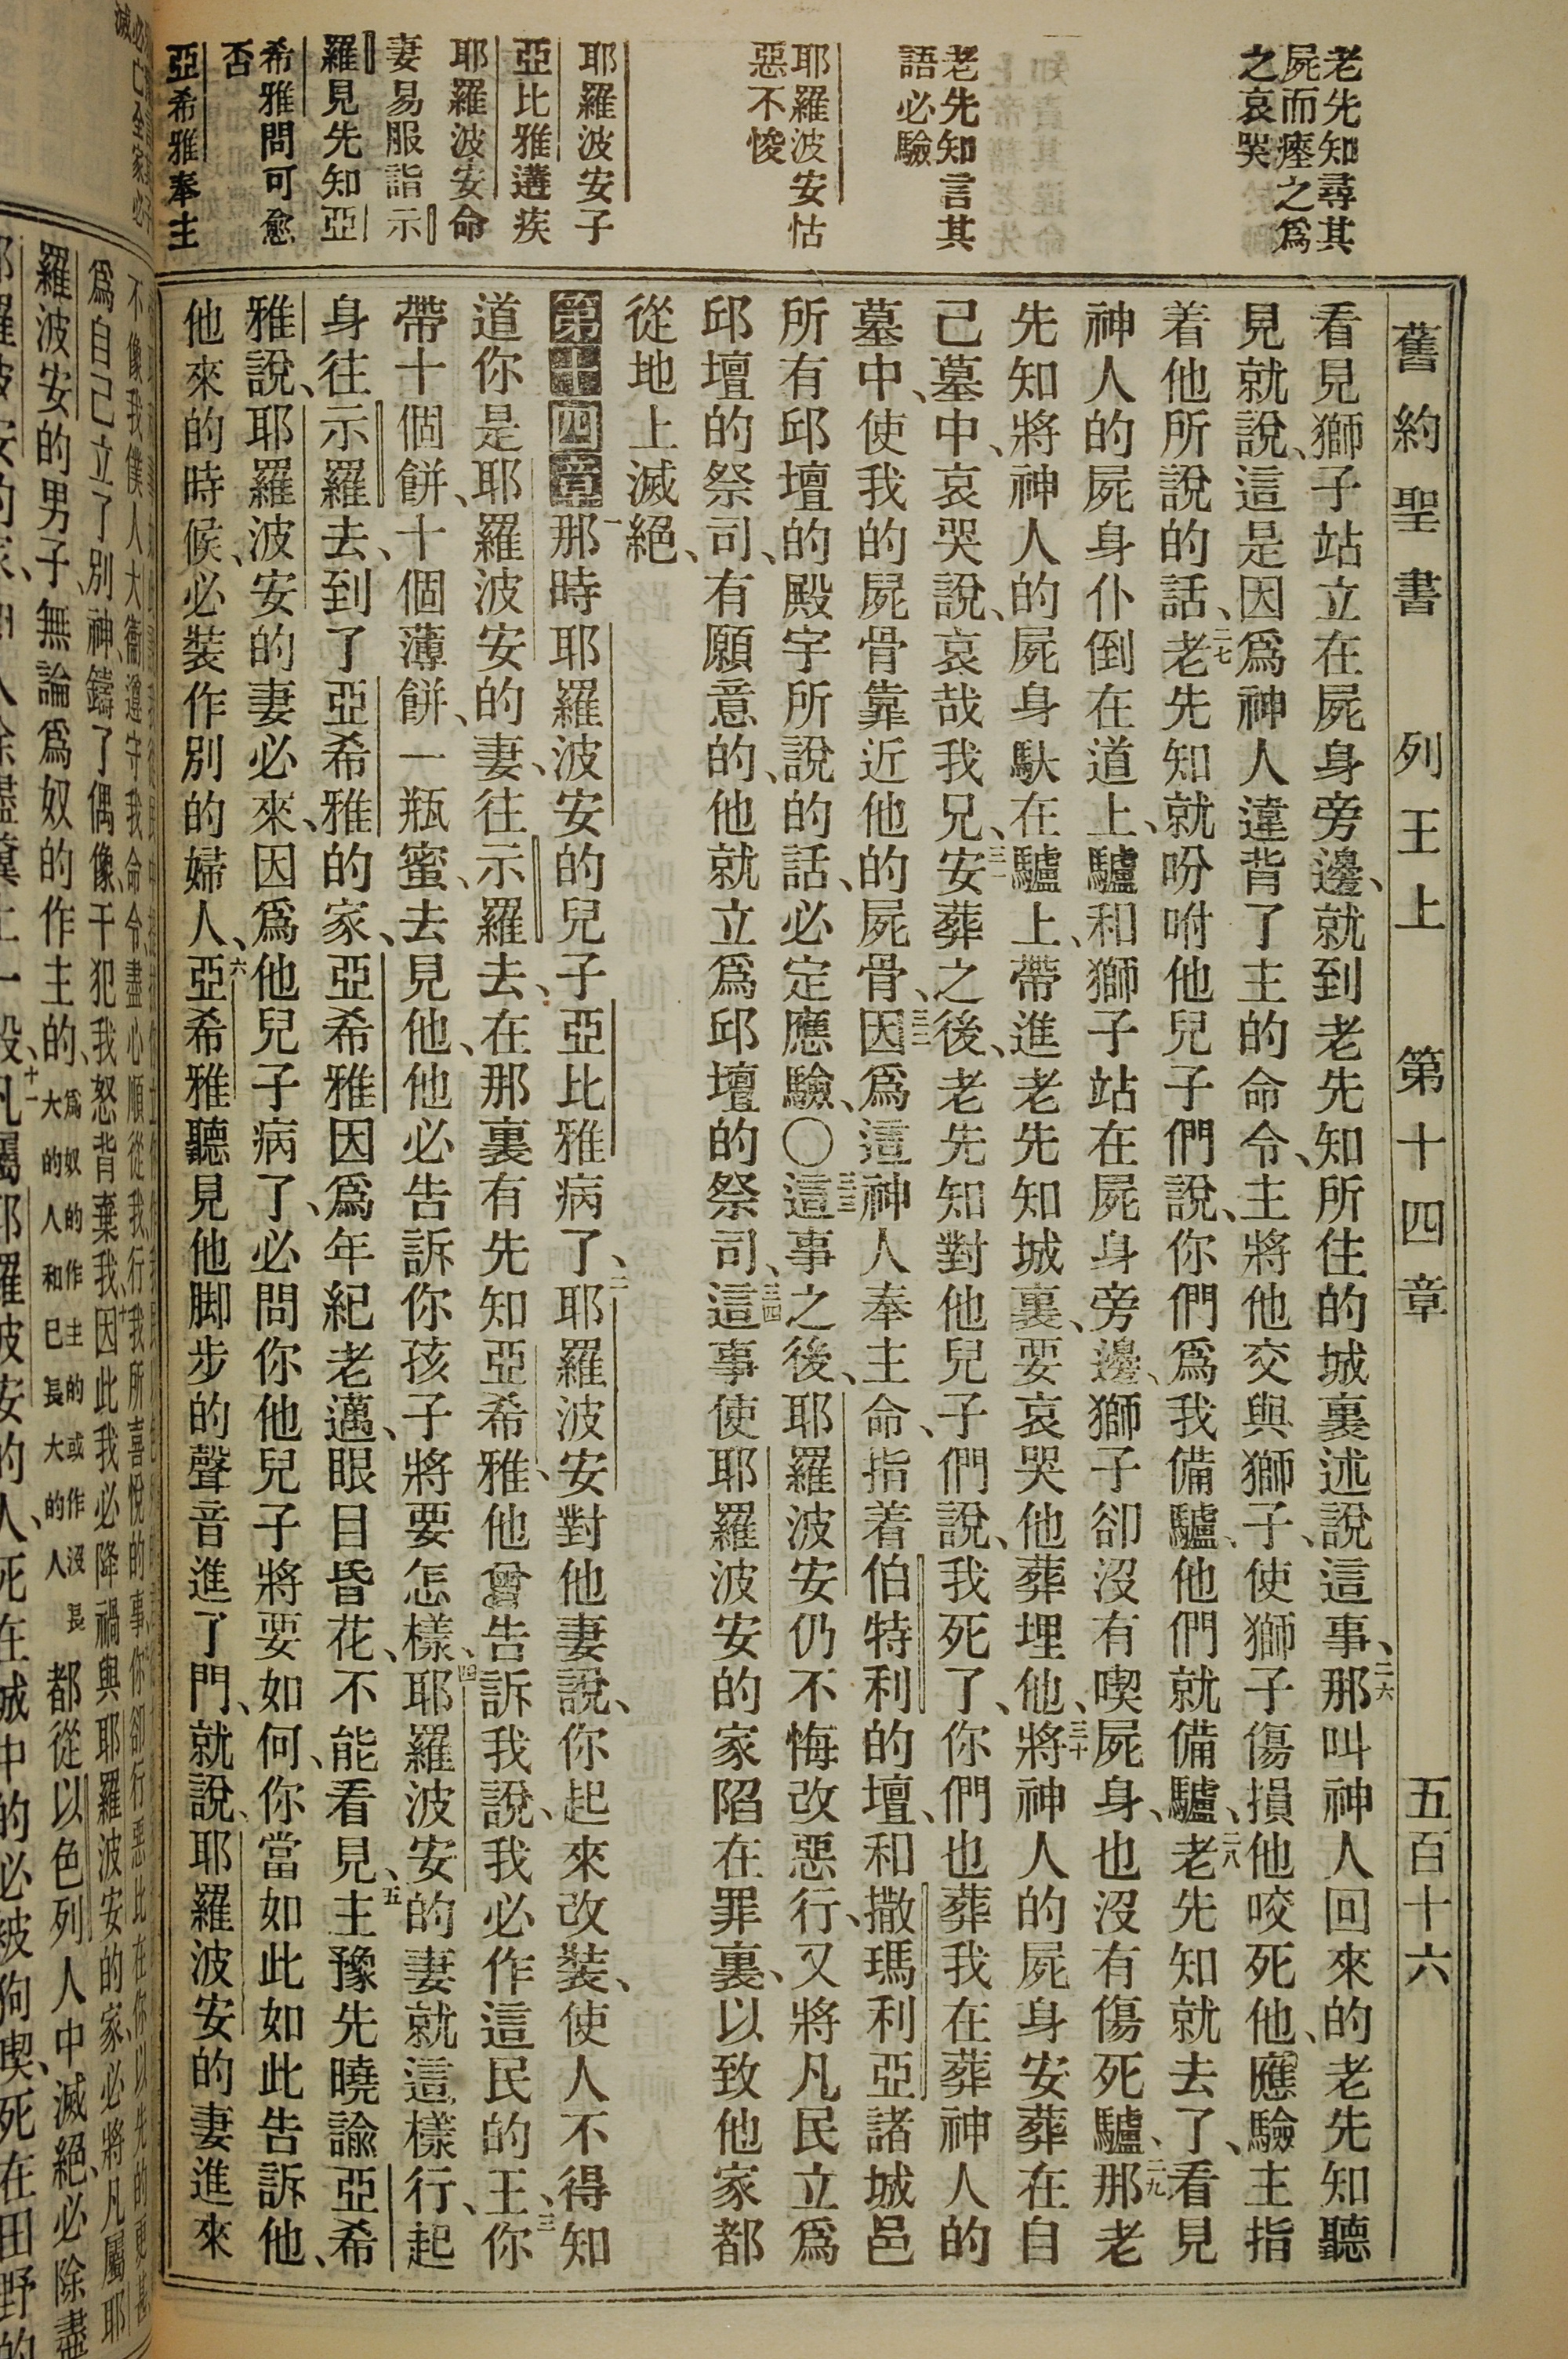 舊約聖書 列王上 第十四章 五百十六
老先知尋其
屍而瘞之爲
之哀哭
老先知言其
語必驗
耶羅波安怙
惡不悛
耶羅波安子
亞比雅遘疾
耶羅波安命
妻易服詣示
羅見先知亞
希雅問可愈
否
亞希雅奉主
看見獅子站立在屍身旁邊、就到老先知所住的城裏述說這事、二六那叫神人回來的老先知聽
見就說、這是因爲神人違背了主的命令、主將他交與獅子、使獅子傷損他咬死他、應驗主指
着他所說的話、二七老先知就吩咐他兒子們說、你們爲我備驢、他們就備驢、二八老先知就去了、看見
神人的屍身仆倒在道上、驢和獅子站在屍身旁邊、獅子卻沒有喫屍身、也沒有傷死驢、二九那老
先知將神人的屍身馱在驢上、帶進老先知城裏、要哀哭他葬埋他、三十將神人的屍身安葬在自
己墓中、哀哭說、哀哉我兄、三一安葬之後、老先知對他兒子們說、我死了、你們也葬我在葬神人的
墓中、使我的屍骨靠近他的屍骨、三二因爲這神人奉主命、指着伯特利的壇、和撒瑪利亞諸城邑
所有邱壇的殿宇所說的話、必定應驗、〇三三這事之後、耶羅波安仍不悔改惡行、又將凡民立爲
邱壇的祭司、有願意的、他就立爲邱壇的祭司、三四這事使耶羅波安的家陷在罪裏、以致他家都
從地上滅絕、
第十四章一那時耶羅波安的兒子亞比雅病了、二耶羅波安對他妻說、你起來改裝、使人不得知
道你是耶羅波安的妻、往示羅去、在那裏有先知亞希雅、他曾告訴我說、我必作這民的王、三你
帶十個餅、十個薄餅、一瓶蜜、去見他、他必告訴你孩子將要怎樣、四耶羅波安的妻就這樣行、起
身往示羅去、到了亞希雅的家、亞希雅因爲年紀老邁、眼目昏花、不能看見、五主豫先曉諭亞希
雅說、耶羅波安的妻必來、因爲他兒子病了、必問你他兒子將要如何、你當如此如此告訴他、
他來的時候、必裝作別的婦人、六亞希雅聽見他脚步的聲音進了門、就說、耶羅波安的妻進來
不像我僕人大衞遵守我命令、盡心順從我、行我所喜悅的事、你卻行惡比在你以先的更甚
爲自己立了別神、鑄了偶像、干犯我怒、背棄我、十因此我必降禍與耶羅波安的家、必將凡屬耶
羅波安的男子、無論爲奴的作主的、爲奴的作主的或作沒長大的人和已長大的人都從以色列人中滅絕、必除盡